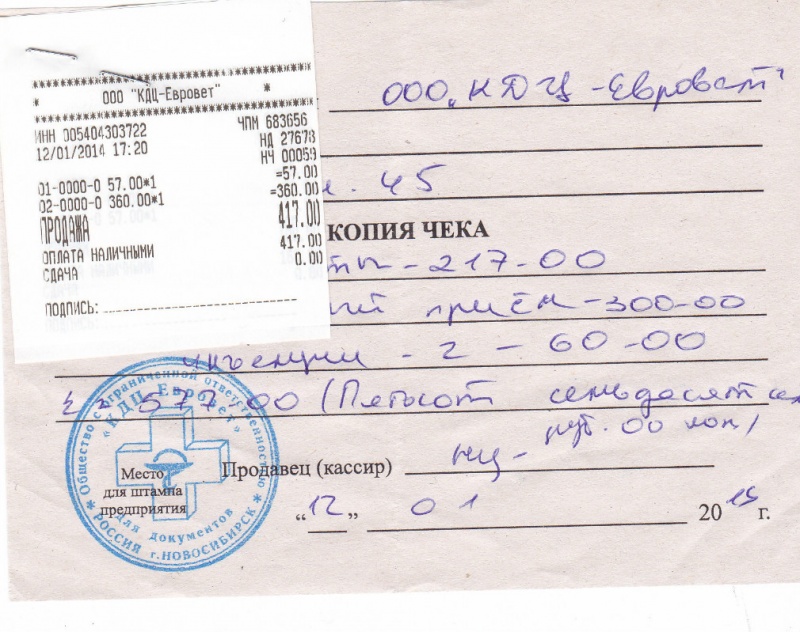 ООО "КДЦ-Евровет" *
ИНН 005404303722 ЧПМ 683656
12/01/2014 17:20 НД 27678
НЧ 00059
01-0000-0 57.00*1 =57.00
02-0000-0 360.00*1 =360.00
ПРОДАЖА 417.00
ОПЛАТА НАЛИЧНЫМИ 417.00
СДАЧА 0.00
ПОДПИСЬ:
ООО „КДЦ-Евровет"
. 45
КОПИЯ ЧЕКА
-217-00
приём-300-00
инъекции - 2 - 60-00
577,00 (Пятьсот семьдесят
руб. 00 коп)
Продавец (кассир)
„12„ 01 20 г.
Место
для штампа
предприятия
Общество с ограниченной ответственностью
«КДЦ Евровет»
для документов
* РОССИЯ г.НОВОСИБИРСК *